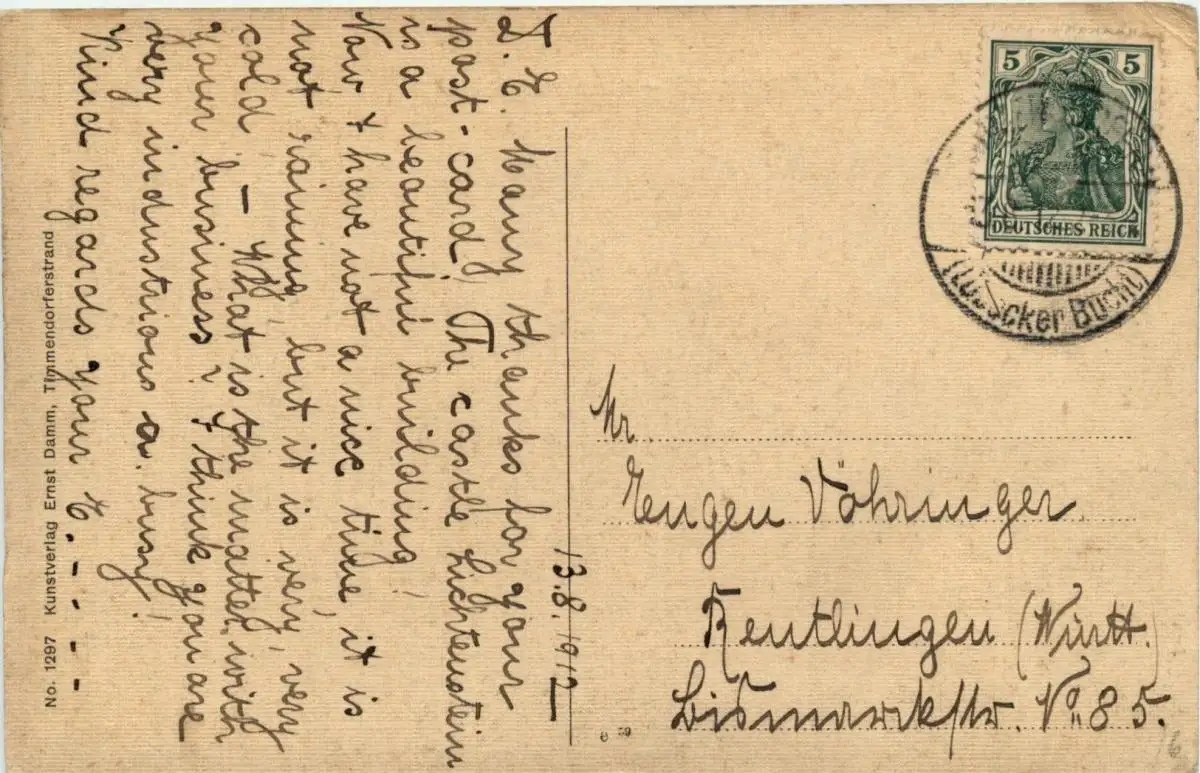 13.8.1912
D. E. Many thanks for your
post-card! The castle Lichtenstein
is a beautiful building!
Now I have not a nice time, it is
not raining but it is very, very
cold. — What is the matter with
your business? I think you are
very industrious a. busy!
Kind regards your E. - - - -
No. 1297 Kunstverlag Ernst Damm, Timmendorferstrand
5 5
DEUTSCHES REICH
(Lübecker Bucht)
Mr.
Eugen Vöhringer
Reutlingen (Württ.)
Bismarckstr. No. 85.